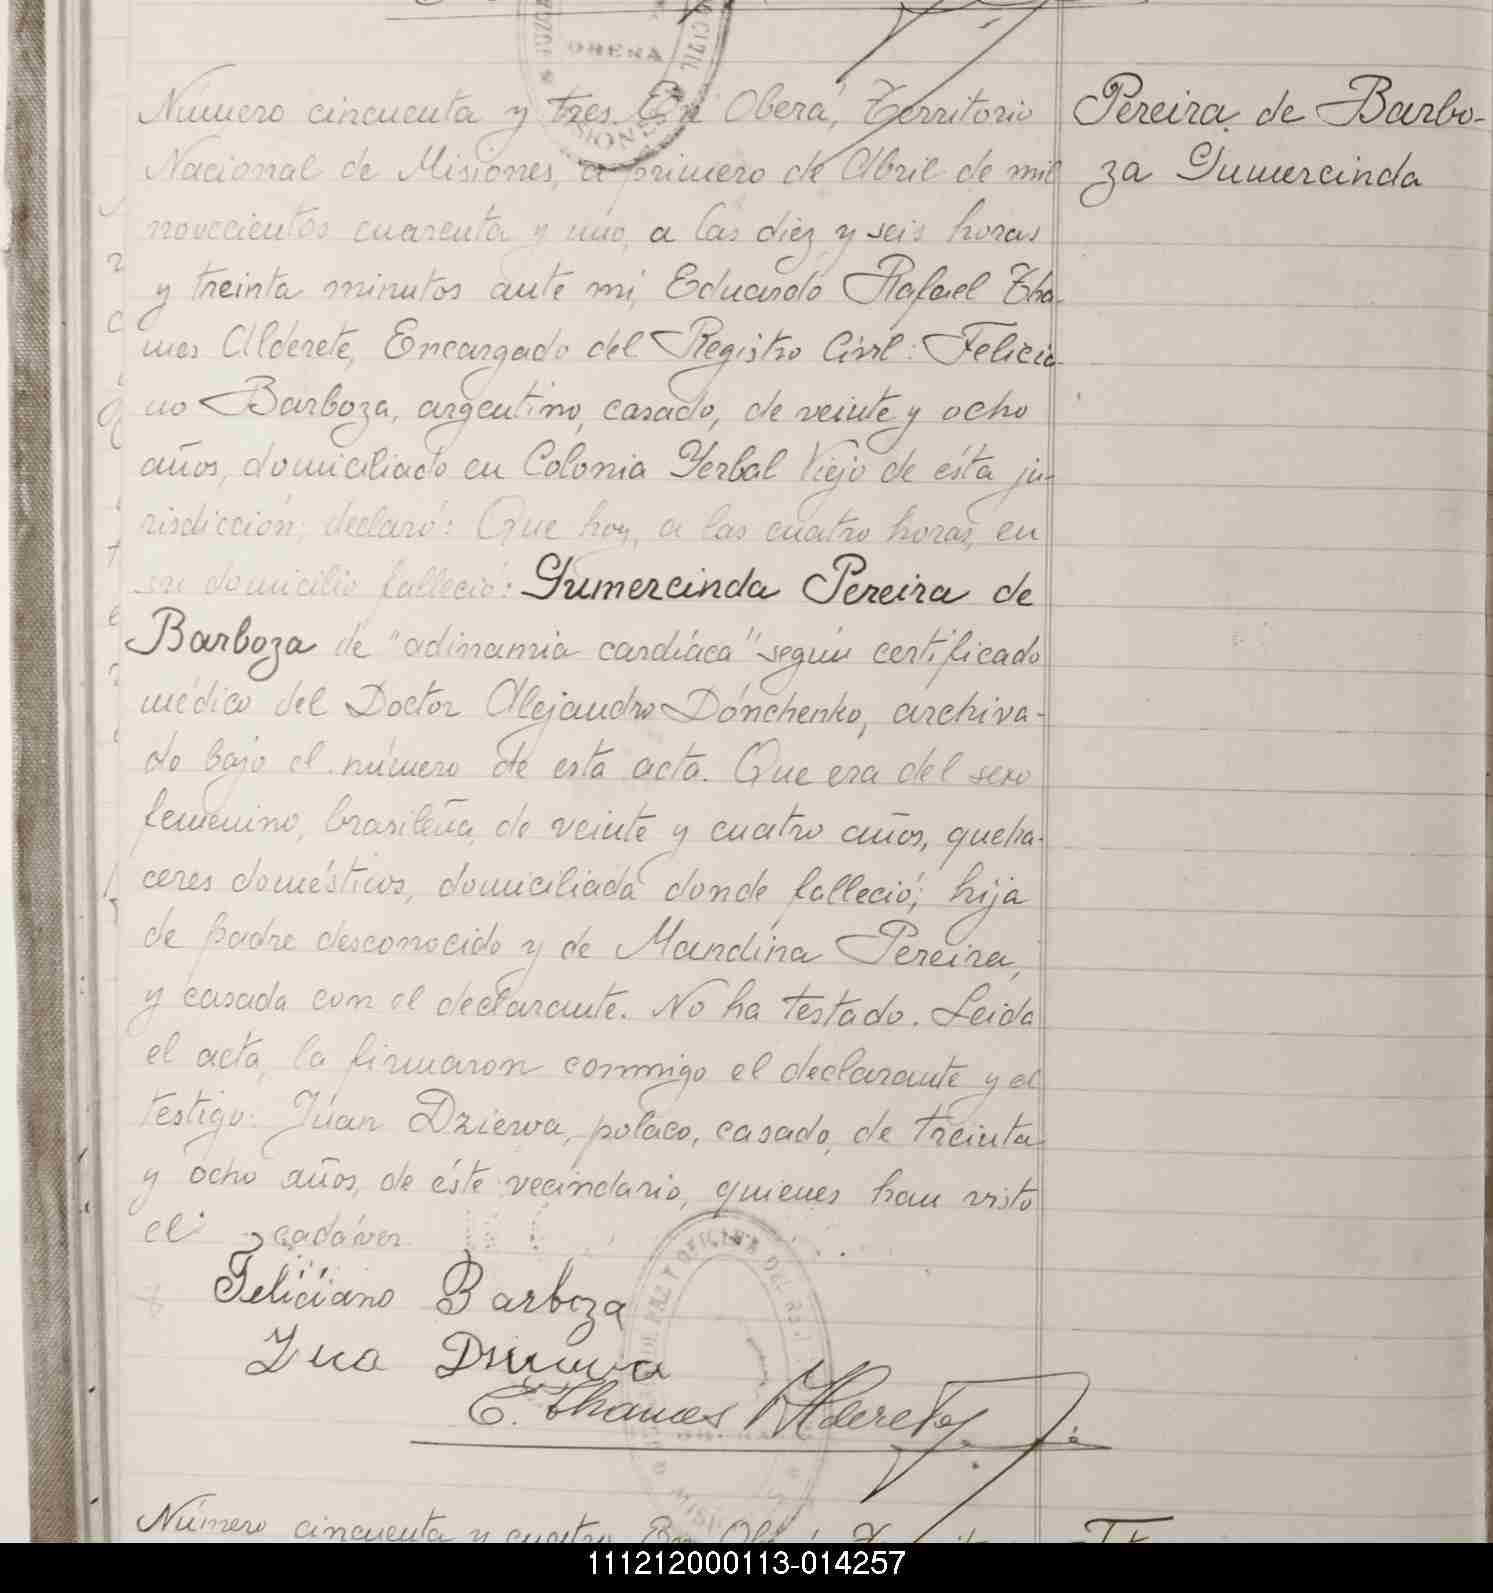 Número cincuenta y tres. En Oberá, Territorio
Pereira de Barbo-
Nacional de Misiones, a primero de Abril de mil
za Gumercinda
novecientos cuarenta y uno, a las diez y seis horas
y treinta minutos ante mí, Eduardo Rafael Tha-
mes Alderete, Encargado del Registro Civil: Felicia-
no Barboza, argentino, casado, de veinte y ocho
años, domiciliado en Colonia Yerbal Viejo de ésta ju-
risdicción, declaró: Que hoy, a las cuatro horas, en
su domicilio falleció: Gumercinda Pereira de
Barboza de "adinamia cardíaca" según certificado
médico del Doctor Alejandro Dónchenko, archiva-
do bajo el número de esta acta. Que era del sexo
femenino, brasileña, de veinte y cuatro años, queha-
ceres domésticos, domiciliada donde falleció; hija
de padre desconocido y de Mandina Pereira,
y casada con el declarante. No ha testado. Leída
el acta, la firmaron conmigo el declarante y el
testigo: Juan Dzierva, polaco, casado, de treinta
y ocho años, de éste vecindario, quienes han visto
el cadáver
Feliciano Barboza
E. Thames Alderete
Número cincuenta y cuatro. En
111212000113-014257